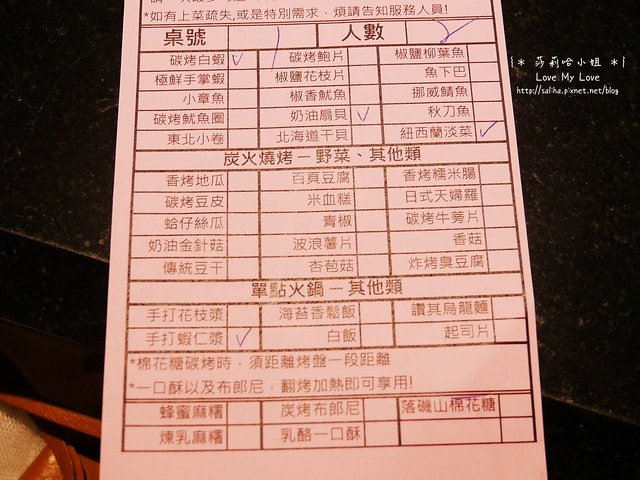 *如有上菜疏失,或是特別需求,煩請告知服務人員!
桌號 1 人數 2
碳烤白蝦 ✓ 碳烤鮑片 椒鹽柳葉魚
極鮮手掌蝦 椒鹽花枝片 魚下巴
小章魚 椒香魷魚 挪威鯖魚
碳烤魷魚圈 奶油扇貝 ✓ 秋刀魚
東北小卷 北海道干貝 紐西蘭淡菜 ✓
炭火燒烤－野菜、其他類
香烤地瓜 百頁豆腐 香烤糯米腸
碳烤豆皮 米血糕 日式天婦羅
蛤仔絲瓜 青椒 碳烤牛蒡片
奶油金針菇 波浪薯片 香菇
傳統豆干 杏苞菇 炸烤臭豆腐
單點火鍋－其他類
手打花枝漿 海苔香鬆飯 讚其烏龍麵
手打蝦仁漿 ✓ 白飯 起司片
*棉花糖碳烤時，須距離烤盤一段距離
*一口酥以及布郎尼，翻烤加熱即可享用!
蜂蜜麻糬 炭烤布郎尼 落磯山棉花糖
煉乳麻糬 乳酪一口酥
|* 莎莉哈小姐 *|
Love My Love
http://saliha.pixnet.net/blog